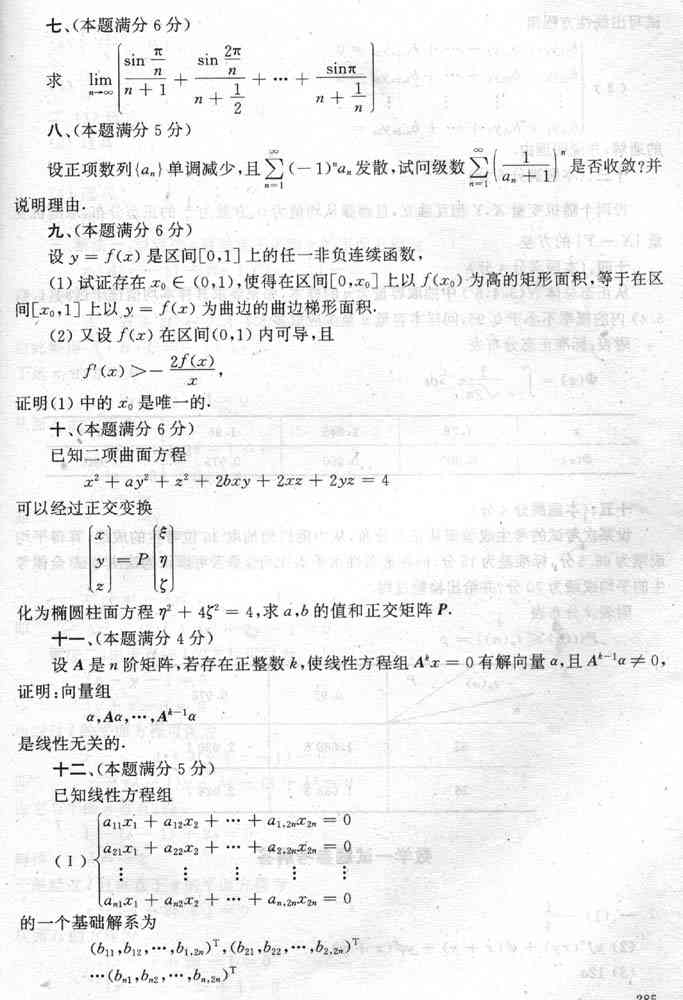 七、(本题满分6分)
求 lim_{n→∞} [ sin(π/n)/(n+1) + sin(2π/n)/(n+1/2) + ⋯ + sinπ/(n+1/n) ]
八、(本题满分5分)
设正项数列{aₙ}单调减少,且∑_{n=1}^{∞}(−1)ⁿaₙ发散,试问级数∑_{n=1}^{∞}(1/(aₙ+1))ⁿ是否收敛?并
说明理由.
九、(本题满分6分)
设 y = f(x) 是区间[0,1]上的任一非负连续函数,
(1)试证存在 x₀ ∈ (0,1),使得在区间[0,x₀]上以 f(x₀) 为高的矩形面积,等于在区
间[x₀,1]上以 y = f(x) 为曲边的曲边梯形面积.
(2)又设 f(x) 在区间(0,1)内可导,且
f′(x) >− 2f(x)/x,
证明(1)中的 x₀ 是唯一的.
十、(本题满分6分)
已知二项曲面方程
x² + ay² + z² + 2bxy + 2xz + 2yz = 4
可以经过正交变换
[x y z] = P [ξ η ζ]
化为椭圆柱面方程 η² + 4ζ² = 4,求 a,b 的值和正交矩阵 P.
十一、(本题满分4分)
设 A 是 n 阶矩阵,若存在正整数 k,使线性方程组 Aᵏx = 0 有解向量 α,且 Aᵏ⁻¹α ≠ 0,
证明:向量组
α,Aα,⋯,Aᵏ⁻¹α
是线性无关的.
十二、(本题满分5分)
已知线性方程组
a₁₁x₁ + a₁₂x₂ + ⋯ + a₁,₂ₙx₂ₙ = 0
a₂₁x₁ + a₂₂x₂ + ⋯ + a₂,₂ₙx₂ₙ = 0
(Ⅰ) ⋮ ⋮ ⋮ ⋮
aₙ₁x₁ + aₙ₂x₂ + ⋯ + aₙ,₂ₙx₂ₙ = 0
的一个基础解系为
(b₁₁,b₁₂,⋯,b₁,₂ₙ)ᵀ,(b₂₁,b₂₂,⋯,b₂,₂ₙ)ᵀ
⋯(bₙ₁,bₙ₂,⋯,bₙ,₂ₙ)ᵀ